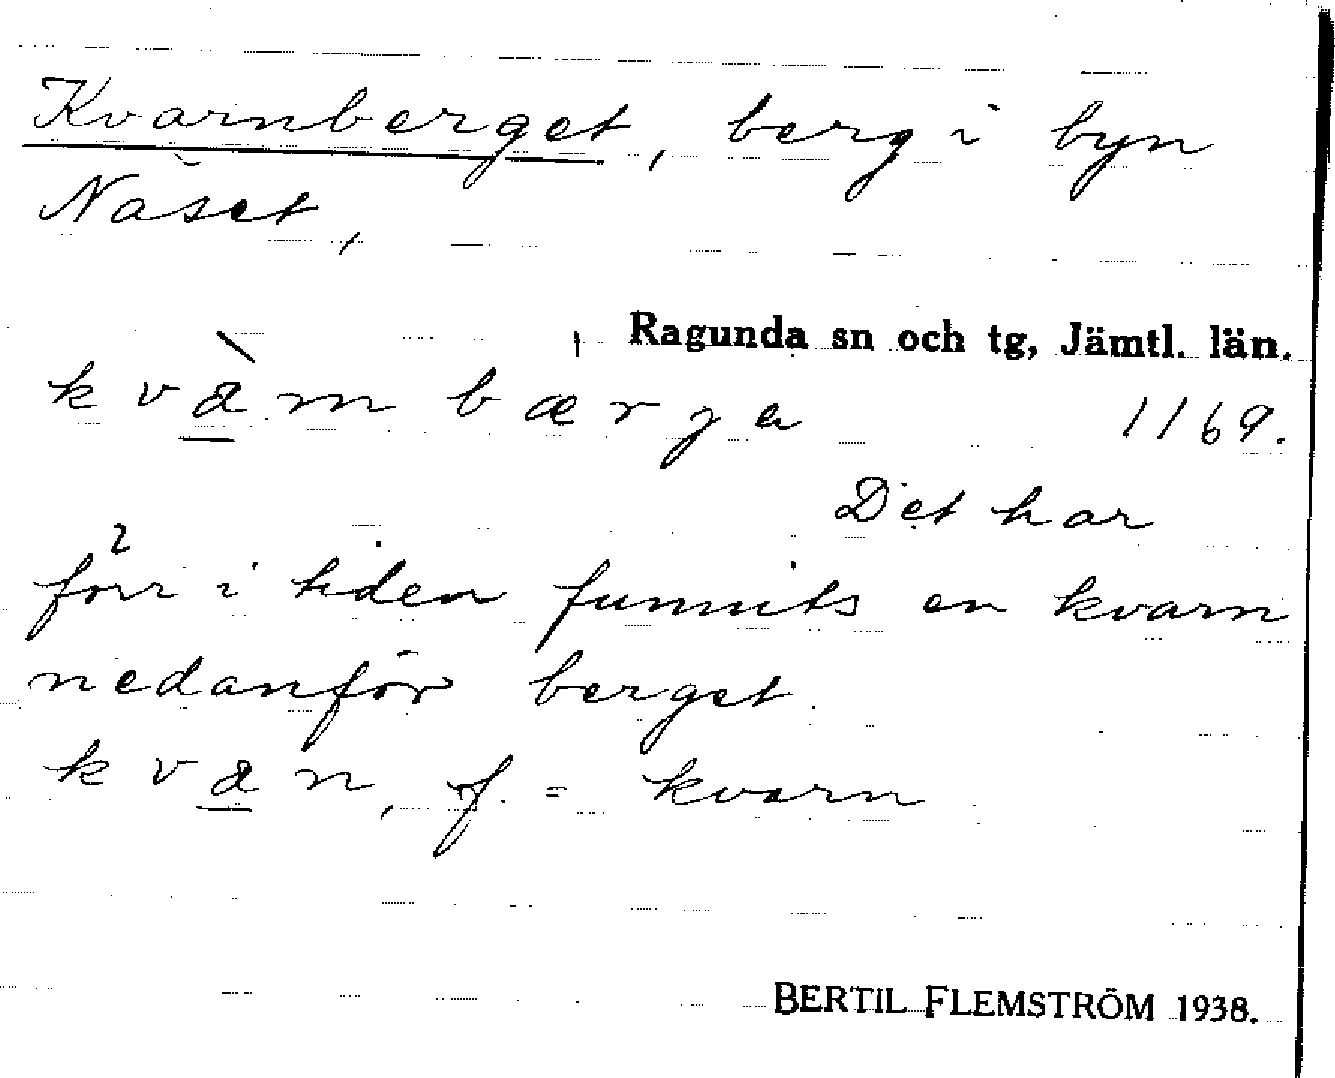 Kvarnberget, berg i byn
Näset,
Ragunda sn och tg, Jämtl. län.
kvàmbærga 1169.
Det har
förr i tiden funnits en kvarn
nedanför berget.
kvan, f. = kvarn
BERTIL FLEMSTRÖM 1938.